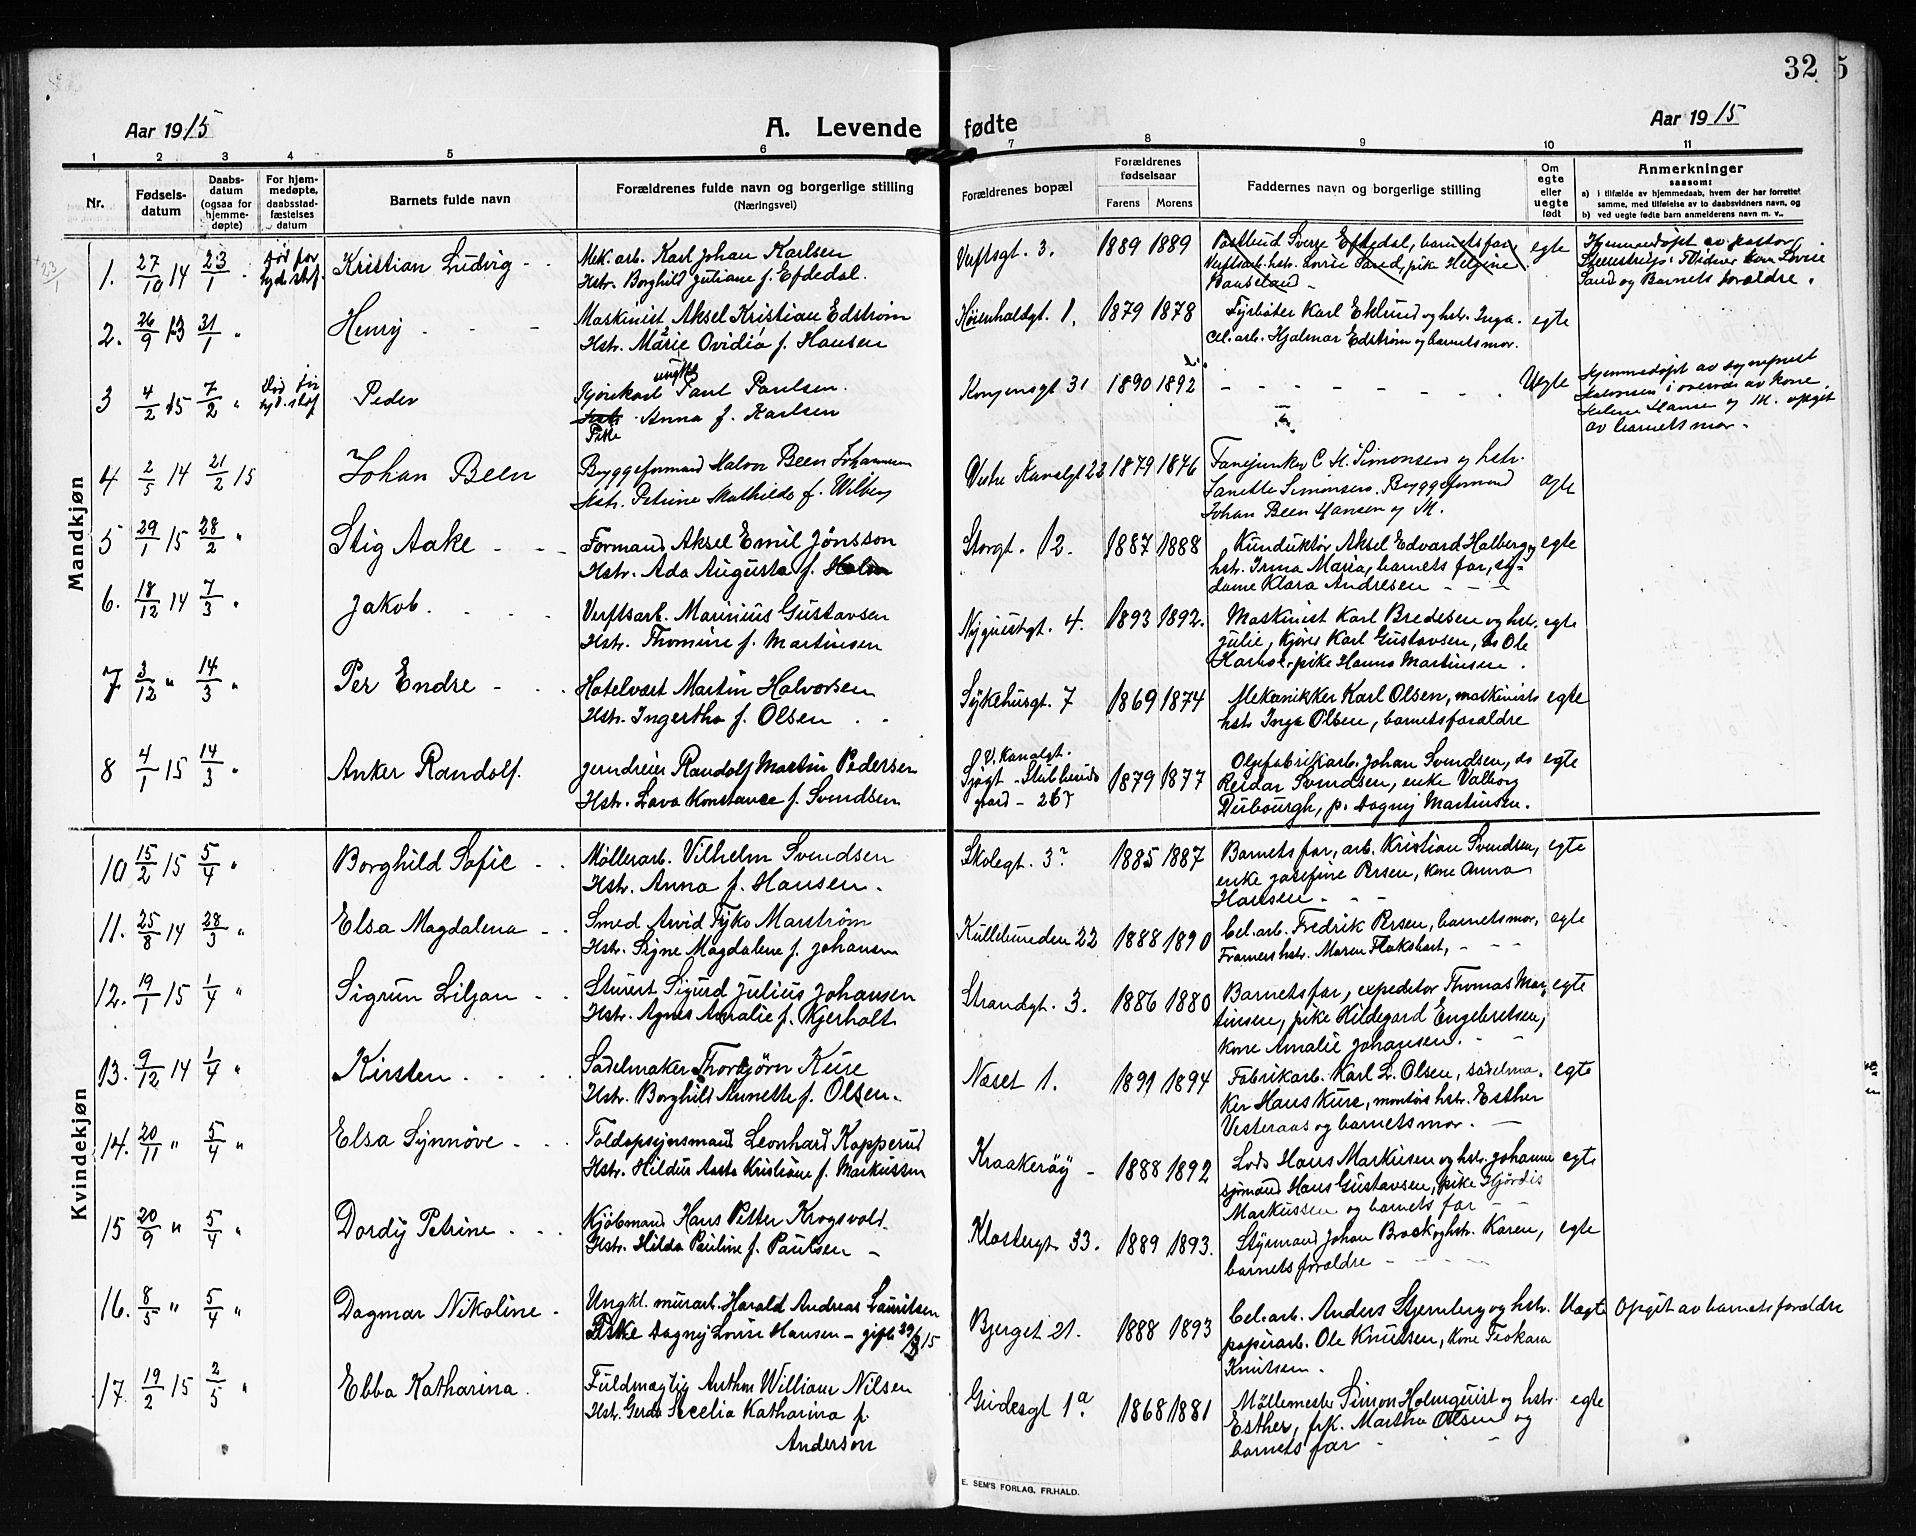 32
5
Aar 1915
A. Levende fødte
Aar 1915
1 2 3 4 5 6 7 8 9 10 11
Nr.
Fødsels-
datum
Daabs-
datum
(ogsaa for
hjemme-
døpte)
For hjem-
medøpte,
daabsstad-
fæstelses
datum
Barnets fulde navn
Forældrenes fulde navn og borgerlige stilling
(Næringsvei)
Forældrenes bopæl
Forældrenes
fødselsaar
Farens Morens
Faddernes navn og borgerlige stilling
Om
egte
eller
uegte
født
Anmerkninger
saasom:
a) i tilfælde av hjemmedaab, hvem der har forrettet
samme, med tilføielse av to daabsvidners navn, og
b) ved uegte fødte barn anmelderens navn m. v..
Mandkjøn
23/1
1. 27/10 14 23/1 " død før Kristian Ludvig - - Mek. arb. Karl Johan Karlsen Verftsgt. 3. 1889 1889 Postbud Sverre Eftedal, barnets far, egte Hjemmedøpt av pastor
Hstr. Borghild Juliane f. Eftedal.
Sand og Barnets forældre.
2. 26/9 13 31/1 " Henry - - - Maskinist Aksel Kristian Edstrøm Høienhaldgt. 1. 1879 1878 Fyrbøter Karl Eklund og hstr. Inga. egte
Hstr. Marie Ovidia f. Hansen Cel. arb. Hjalmar Edstrøm og barnets mor.
3 4/2 15 7/2 " Peder Kjørekarl ungkl Paul Paulsen. Kongensgt 31 1890 1892 - - - - - Uegte Hjemmedøpt av
Hstr. Pike Anna f. Karlsen
Helene Hansen og M. opgit
av barnets mor -
4 2/5 14 21/2 15 Johan Been Bryggeformand Halvor Been Johannesen Vestre Kanalgt 22 1879 1876 Fanejunker C. H. Simonsen og hstr. egte
Hstr. Petrine Mathilde f. Wilberg Janette Simonsen. Bryggeformand
Johan Been Hansen og M.
5 29/1 15 28/2 " Stig Aake - - Formand Aksel Emil Jönsson Storgt. 12. 1887 1888 Kunduktør Aksel Edvard Halberg og egte
Hstr. Ada Augusta f. Holm hstr. Irma Maria, barnets far, sy-
dame Klara Andresen - - -
6. 18/12 14 7/3 " Jakob. - - - Verftsarb. Marinius Gustavsen Nygaardsgt. 4. 1893 1892. Maskinist Karl Bredesen og hstr. egte
Hstr. Thomine f. Martinsen Julie, Kjører Karl Gustavsen, do Ole
pike Hanna Martinsen.
7 3/12 " 14/3 " Per Endre - - - Hotelvært Martin Halvorsen Sykehusgt. 7 1869 1874 Mekanikker Karl Olsen, maskinists egte
Hstr. Ingertha f. Olsen. hstr Inga Olsen, barnets forældre
8 4/1 15 14/3 " Anker Randolf. Jerndreier Randolf Martin Pedersen 1879 1877 Oljefabrikarb. Johan Svendsen, do egte
V. Kanalgt.
Hstr. Lava Konstance f. Svendsen gaard - 26 Reidar Svendsen, enke Valborg
Dubourgh, p. Dagny Martinsen.
Kvindekjøn
10 15/2 15 5/4 " Borghild Sofie - - Møllerarb. Vilhelm Svendsen Skolegt. 3 1885 1887 Barnets far, arb. Kristian Svendsen, egte
Hstr. Anna f. Hansen. enke Josefine Persen, kone Anna
Hansen - - -
11. 25/8 14 28/3 " Elsa Magdalena - - Smed Arvid Tyko Marstrøm Kullebunden 22 1888 1890 Cel. arb. Fredrik Persen, barnets mor, egte
Hstr. Signe Magdalene f. Johansen hstr. Maren Flakstart, - - -
12. 19/1 15 1/4 " Sigrun Liljan - - Stuert Sigurd Julius Johansen Strandgt. 3. 1886 1880 Barnets far, expeditør Thomas Mar- egte
Hstr. Agnes Amalie f. Kjerholt tinsen, pike Hildegard Engebretsen,
kone Amalie Johansen. -
13. 9/12 14 1/4 " Kirsten - - - - Sadelmaker Thorbjørn Kure Næset 1. 1891 1894 Fabrikarb. Karl L. Olsen, sadelma- egte
Hstr. Borghild Annette f. Olsen. ker Hans Kure, montørs hstr. Esther
Vesteraas og barnets mor. -
14. 20/11 " 5/4 " Elsa Synnøve - - - Toldopsynsmand Leonhard Kopperud Kraakerøy - 1888 1892 Lods Hans Markusen og hstr. Johanne egte
Hstr. Hildur Aasta Kristiane f. Markussen sjømand Hans Gustavsen, pike Hjørdis
Markussen og barnets far - -
15 20/9 " 5/4 " Dordy Petrine - - - Kjøbmand Hans Petter Krogsvold. Klostergt 33. 1889 1893. Styrmand Johan Brock og hstr. Karen, egte
Hstr. Hilda Pauline f. Paulsen - barnets forældre - - - -
16. 8/5 " 5/4 " Dagmar Nikoline - Ungkl. murarb. Harald Andreas Lauritsen Bjerget 21. 1888 1893 Cel. arb. Anders Stjernberg og hstr. Uegte Opgit av barnets forældre
Pike Dagny Lovise Hansen - gift papirarb. Ole Knutsen, kone Teokara
Knutsen -
17. 19/2 15 2/5 " Ebba Katharina. Fuldmægtig Anthon William Nilsen Gudesgt 1a 1868 1881 Møllemester Simon Holmquist og hstr. egte
Hstr. Gerda Secelia Katharina f. Esther, frk. Martha Olsen og
Anderson barnets far -
E. SEM'S FORLAG, FR.HALD.